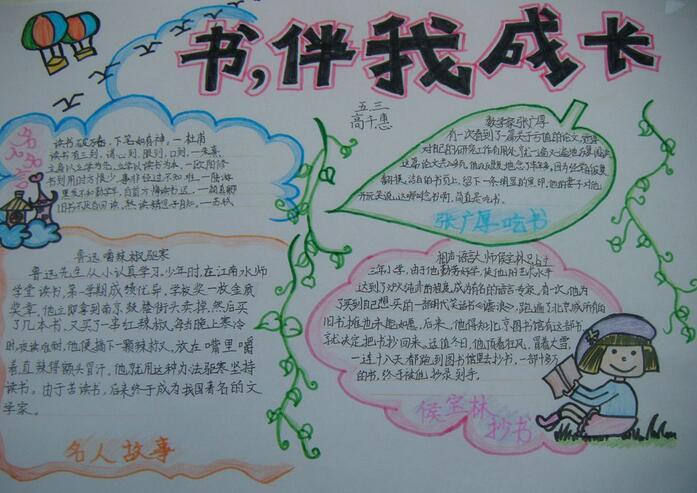 书,伴我成长
五.三
高千惠
名言
读书破万卷,下笔如有神。—杜甫
读书有三到,谓心到,眼到,口到。—朱熹
立身以立学为先,立学以读书为本。—欧阳修
书到用时方恨少,事非经过不知难。—陆游
黑发不知勤学早,白首方悔读书迟。—颜真卿
旧书不厌百回读,熟读精思子自知。—苏轼
数学家张广厚
有一次看到了一篇关于
吃书。
张广厚吃书
鲁迅嚼辣椒驱寒
鲁迅先生从小认真学习。少年时,在江南水师
学堂读书,第一学期成绩优异,学校奖一枚金质
奖章,他立即拿到南京鼓楼街头卖掉,然后买
了几本书,又买了一串红辣椒。每当晚上寒冷
时,夜读难耐,他便摘下一颗辣椒,放在嘴里嚼
着,直辣得额头冒汗。他就用这种办法驱寒坚持
读书。由于苦读书,后来终于成为我国著名的文
学家。
名人故事
相声语言大师侯宝林只上
三年小学,由于他勤奋好学,使他的艺术水平
达到了炉火纯青的程度,成为有名的语言专家。有一次,他为
了买到自己想买的一部明代笑话书《谑浪》,跑遍了北京城所有的
旧书摊也未能如愿。后来,他得知北京图书馆有这部书,
就决定把书抄回来。适值冬日,他顶着狂风,冒着大雪,
一连十八天都跑到图书馆里去抄书,一部十多万
的书,终于被他抄录到手。
侯宝林
抄书